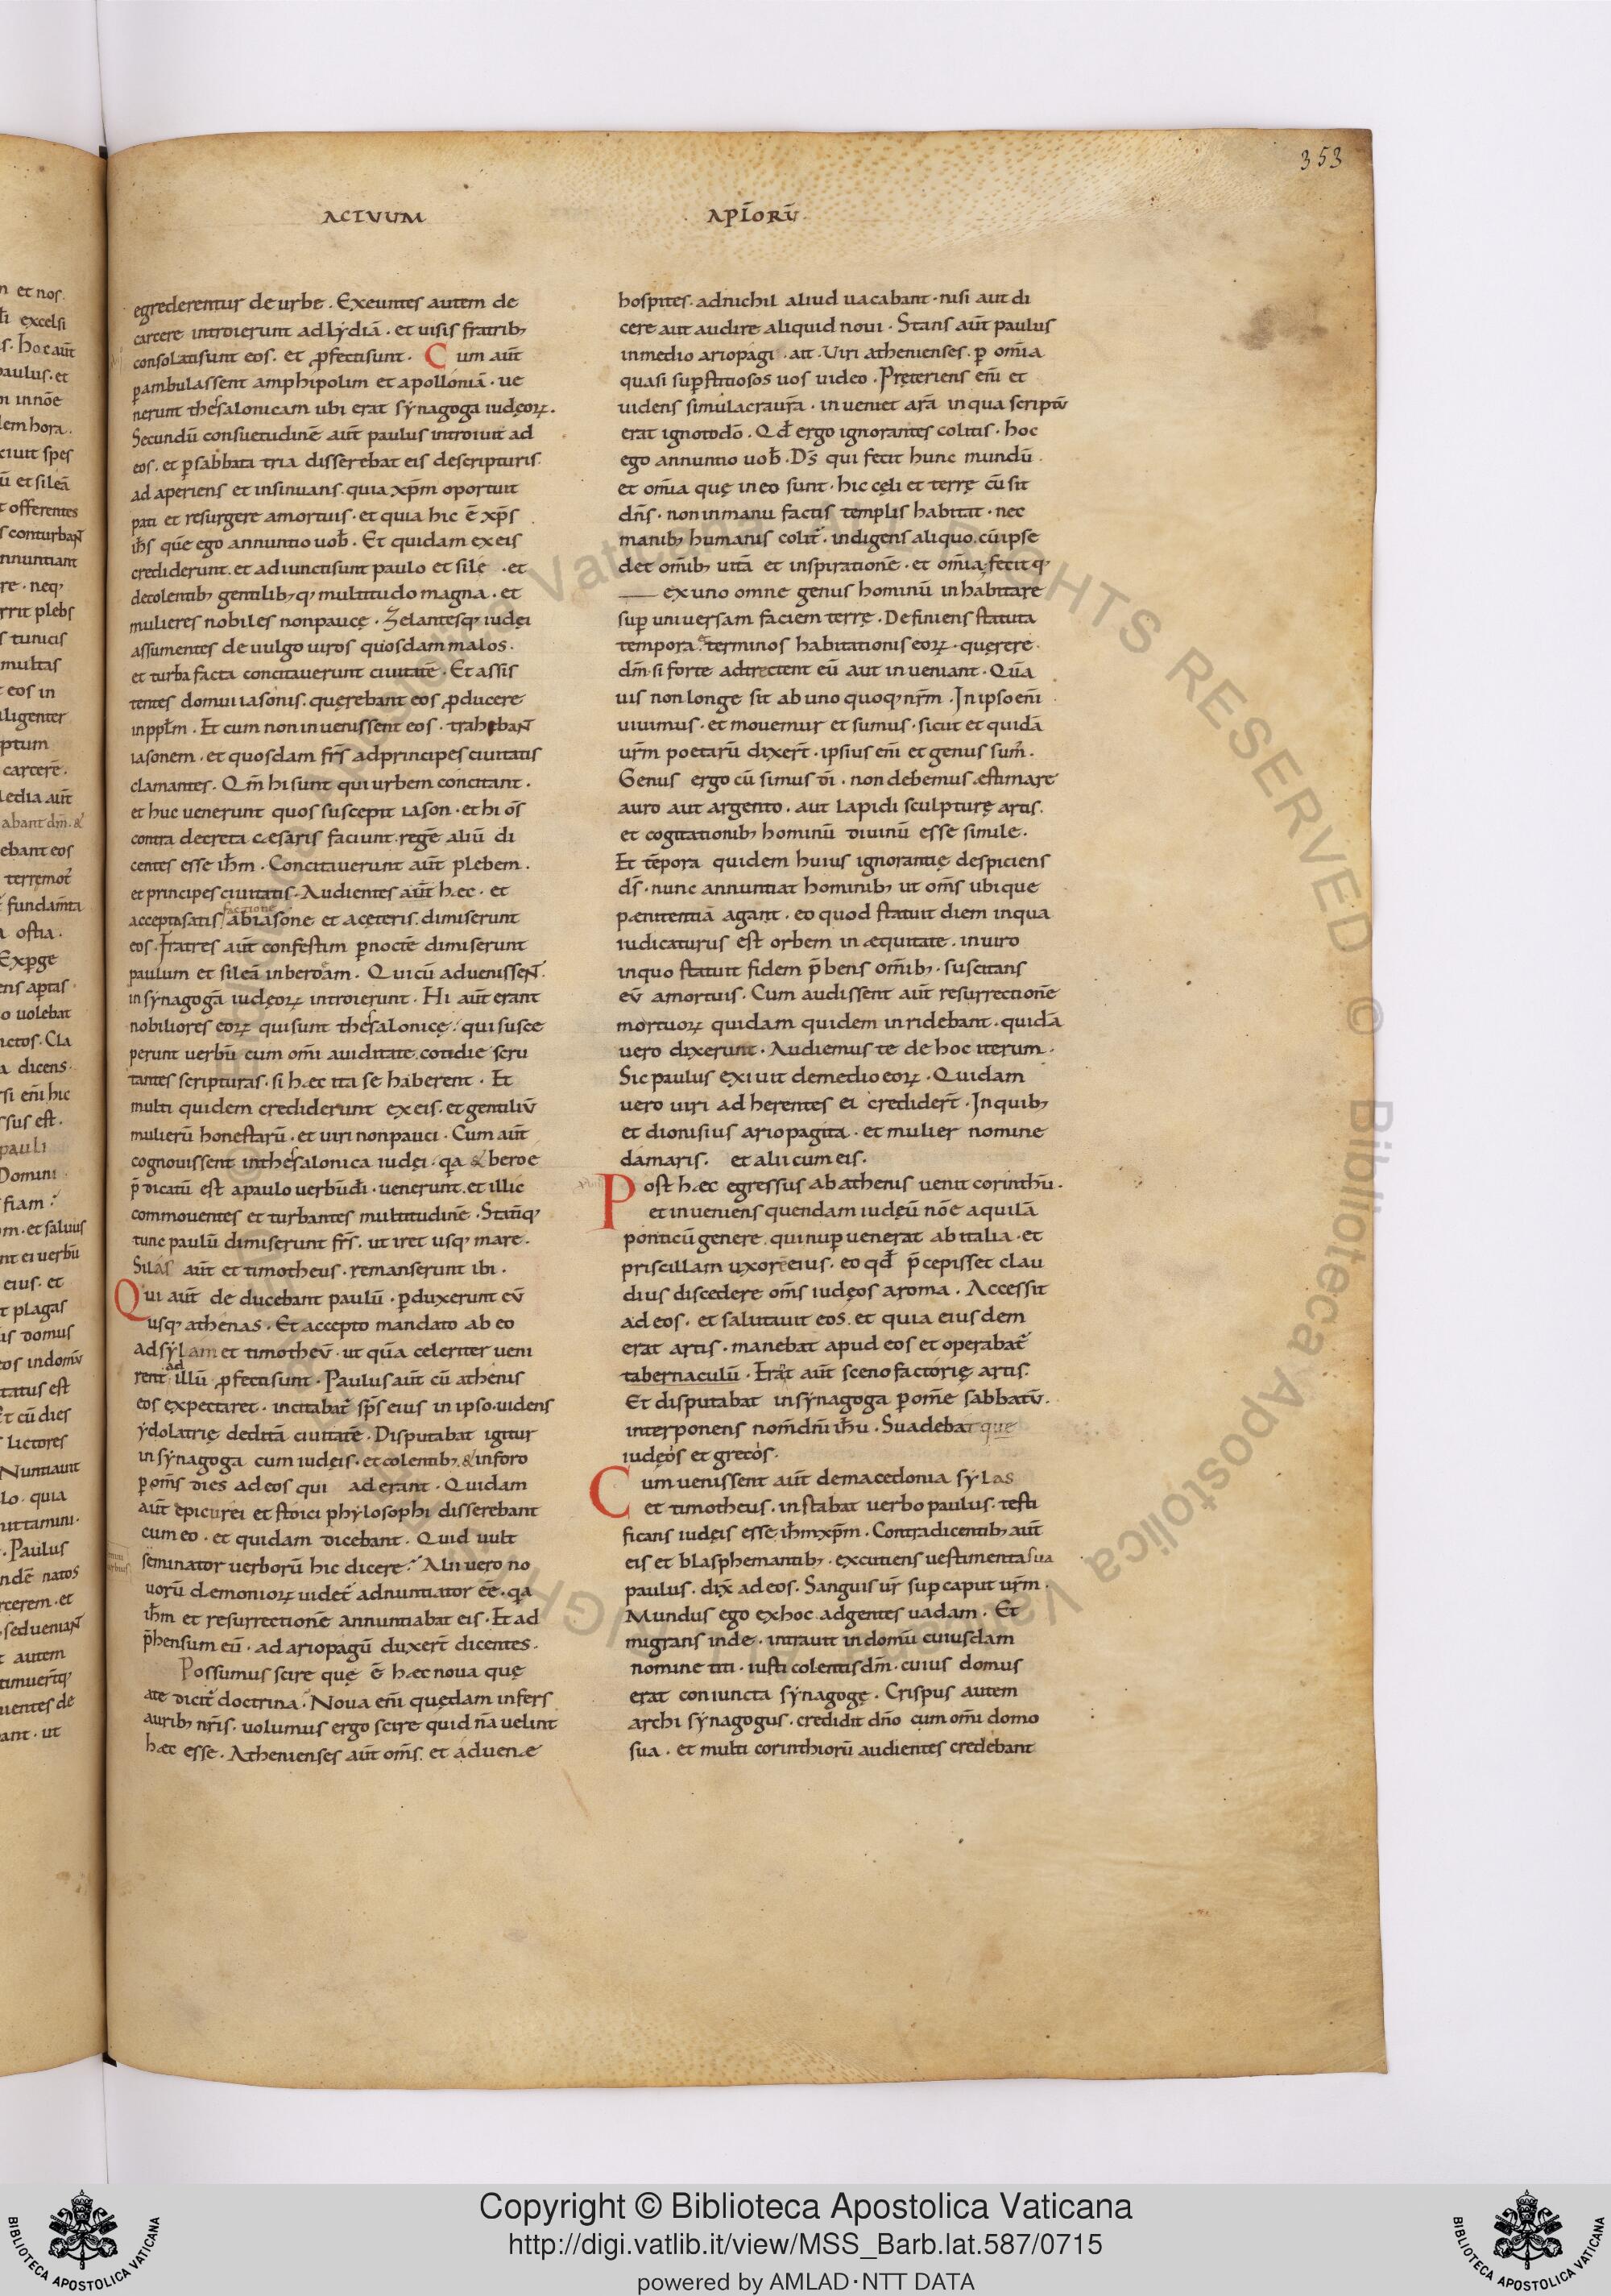 353
ACTVUM
APĪORŪ
egrederentur de urbe. Exeuntes autem de
carcere introierunt adlẏdiā. et uisis fratrib;
consolatisunt eos. et ꝓfectisunt. Cum aut̄
ꝑambulassent amphipolim et apolloniā. ue
nerunt thessalonicam ubi erat sẏnagoga iudęoꝝ.
Secundū consuetudinē aut̄ paulus introiuit ad
eos. et ꝑsabbata tria disserebat eis descripturis.
ad aperiens et insinuans. quia xp̄m oportuit
pati et resurgere amortuis. et quia hic ē xp̄s
ih̄s quē ego annuntio uob̄. Et quidam ex eis
crediderunt. et adiunctisunt paulo et sile. et
decolentib; gentilib;q; multitudo magna. et
mulieres nobiles nonpaucę. Zelantesq; iudęi
assumentes de uulgo uiros quosdam malos.
et turba facta concitauerunt ciuitatē. Et assis
tentes domui iasonis. quęrebant eos ꝓducere
inppl̄m. Et cum non inuenissent eos. trahebant
iasonem. et quosdam fr̄s adprincipes ciuitatis
clamantes. Qm̄ hi sunt qui urbem concitant.
et huc uenerunt quos suscepit iason. et hi om̄s
contra decreta cęsaris faciunt. regē aliū di
centes esse ih̄m. Concitauerunt aut̄ plebem.
et principes ciuitatis. Audientes aut̄ hæc. et
factione
acceptasatis abiasone et acęteris. dimiserunt
eos. Fratres aut̄ confestim ꝑnoctē dimiserunt
paulum et sileā inberoam. Qui cū aduenissent.
in sẏnagogā iudęoꝝ introierunt. Hi aut̄ erant
nobiliores eoꝝ qui sunt thessalonicę. qui susce
perunt uerbū cum om̄i auiditate. cotidie scru
tantes scripturas. si hæc ita se haberent. Et
multi quidem crediderunt ex eis. et gentiliū
mulierū honestarū. et uiri nonpauci. Cum aut̄
cognouissent inthessalonica iudęi. qa & beroę
p̄dicatū est apaulo uerbūdī. uenerunt. et illic
commouentes et turbantes multitudinē. Statīq;
tunc paulū dimiserunt fr̄s. ut iret usq; mare.
Silas aut̄ et timotheus. remanserunt ibi.
Qui aut̄ de ducebant paulū. ꝑduxerunt eū
usq; athenas. Et accepto mandato ab eo
adsẏlam et timotheū. ut quā celeriter ueni
ad
rent illū ꝓfectisunt. Paulus aut̄ cū athenis
eos expectaret. incitabat̄ sp̄s eius in ipso. uidens
ẏdolatrię deditā ciuitatē. Disputabat igitur
in sẏnagoga cum iudęis. et colentib; & inforo
ꝑ om̄s dies ad eos qui aderant. Quidam
aut̄ epicurei et stoici phẏlosophi disserebant
cum eo. et quidam dicebant. Quid uult
seminator uerborū hic dicere? Alii uero no
uorū demonioꝝ uidet̄ adnuntiator eē. qa
ih̄m et resurrectionē annuntiabat eis. Et ad
p̄hensum eū. ad ariopagū duxer̄t dicentes.
Possumus scire quę ē hæc noua quę
ate dicit̄ doctrina? Noua eni̅ quędam infers
aurib; nr̄is. uolumus ergo scire quid nā uelint
hæc esse. Athenienses aut̄ om̄s. et aduenæ
hospites. adnichil aliud uacabant. nisi aut di
cere aut audire aliquid noui. Stans aut̄ paulus
inmedio ariopagi. ait. Uiri athenienses. ꝑ om̄ia
quasi suꝑstitiosos uos uideo. Pręteriens eni̅ et
uidens simulacraur̄a. inueni et arā in qua scriptū
erat ignotodō. Qd̄ ergo ignorantes colitis. hoc
ego annuntio uob̄. Ds̄ qui fecit hunc mundū
et om̄ia quę in eo sunt. hic cęli et terrę cū sit
dn̄s. non inmanu factis templis habitat. nec
manib; humanis colit̄. indigens aliquo. cū ipse
det om̄ib; uitā et inspirationē. et om̄ia. fecit q;
ex uno omne genus hominū inhabitare
suꝑ uniuersam faciem terrę. Definiens statuta
tempora & terminos habitationis eoꝝ. quęrere
dm̄. si forte adtrectent eū aut inueniant. Quā
uis non longe sit ab uno quoq; nr̄m. In ipso eni̅
uiuimus. et mouemur et sumus. sicut et quidā
ur̄m poetarū dixer̄t. ipsius eni̅ et genus sum̄.
Genus ergo cū simus dī. non debemus ęstimare
auro aut argento. aut lapidi sculpturę artis.
et cogitationib; hominū diuinū esse simile.
Et tēpora quidem huius ignorantię despiciens
ds̄. nunc annuntiat hominib; ut om̄s ubique
pænitentiā agant. eo quod statuit diem inqua
iudicaturus est orbem in æquitate. inuiro
inquo statuit fidem p̄bens om̄ib;. suscitans
eū amortuis. Cum audissent aut̄ resurrectionē
mortuoꝝ quidam quidem inridebant. quidā
uero dixerunt. Audiemus te de hoc iterum.
Sic paulus exiuit demedio eoꝝ. Quidam
uero uiri adherentes ei credider̄t. Inquib;
et dionisius ariopagita. et mulier nomine
damaris. et alii cum eis.
Post hæc egressus ab athenis uenit corinthū.
et inueniens quendam iudęū nōe aquilā
ponticū genere. qui nuꝑ uenerat ab italia. et
priscillam uxorē eius. eo qd̄ p̄cepisset clau
dius discedere om̄s iudęos aroma. Accessit
ad eos. et salutauit eos. et quia eiusdem
erat artis. manebat apud eos et operabat̄
tabernaculū. Erat aut̄ scenofactorię artis.
Et disputabat insẏnagoga ꝑ om̄e sabbatū.
interponens nom̄dn̄i ih̄u. Suadebatque
iudęos et grecos.
Cum uenissent aut̄ demacedonia sẏlas
et timotheus. instabat uerbo paulus. testi
ficans iudęis esse ih̄m xp̄m. Contradicentib; aut̄
eis et blasphemantib;. excutiens uestimenta sua
paulus. dix̄ ad eos. Sanguis ur̄ suꝑ caput ur̄m.
Mundus ego exhoc adgentes uadam. Et
migrans inde. intrauit in domū cuiusdam
nomine titi. iusti colentis dm̄. cuius domus
erat coniuncta sẏnagogę. Crispus autem
archi sẏnagogus. credidit dn̄o cum om̄i domo
sua. et multi corinthiorū audientes credebant
Copyright © Biblioteca Apostolica Vaticana
http://digi.vatlib.it/view/MSS_Barb.lat.587/0715
powered by AMLAD·NTT DATA
BIBLIOTECA APOSTOLICA VATICANA
BIBLIOTECA APOSTOLICA VATICANA